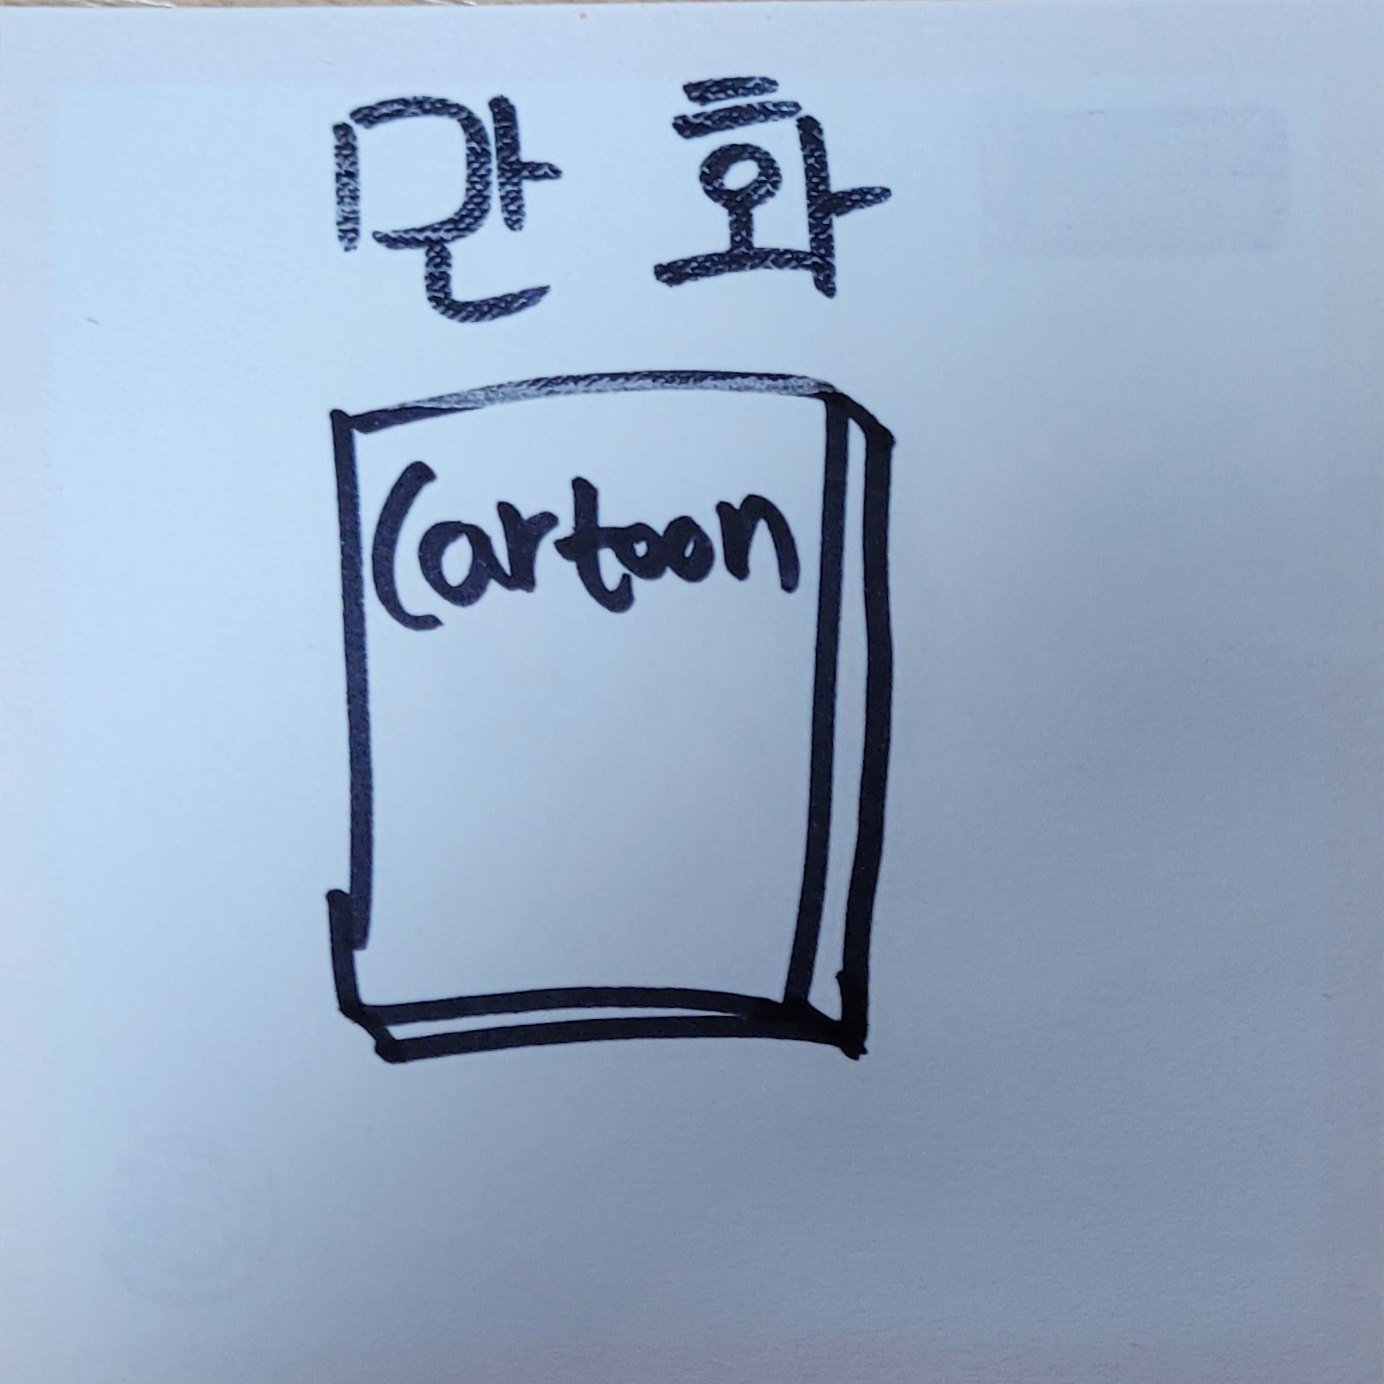 만화
Cartoon